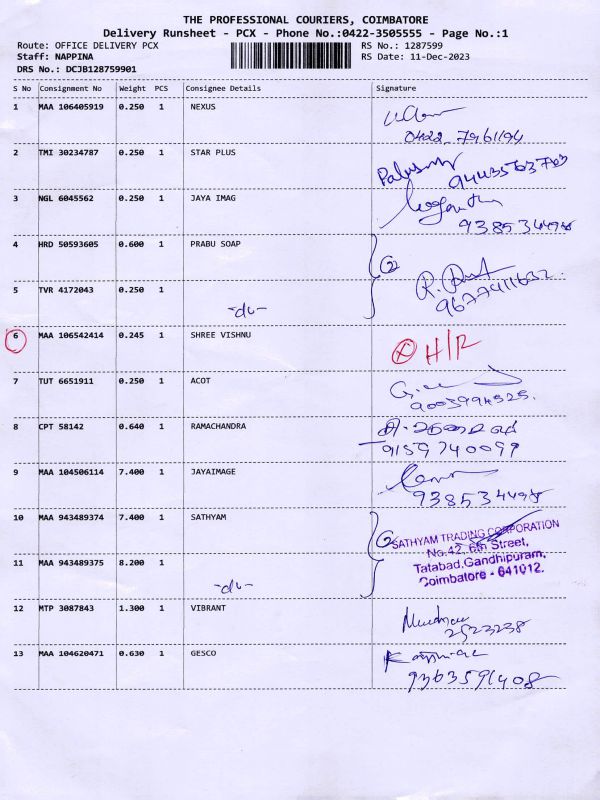 THE PROFESSIONAL COURIERS, COIMBATORE
Delivery Runsheet - PCX - Phone No.:0422-3505555 - Page No.:1
Route: OFFICE DELIVERY PCX RS No.: 1287599
Staff: NAPPINA RS Date: 11-Dec-2023
DRS No.: DCJB128759901
S No Consignment No Weight PCS Consignee Details Signature
1 MAA 106405919 0.250 1 NEXUS
0422-7961194
2 TMI 30234787 0.250 1 STAR PLUS
3 NGL 6045562 0.250 1 JAYA IMAG
4 HRD 50593605 0.600 1 PRABU SOAP
2
5 TVR 4172043 0.250 1
-do-
9677411632
6 MAA 106542414 0.245 1 SHREE VISHNU
H/R
7 TUT 6651911 0.250 1 ACOT
9003994525.
8 CPT 58142 0.640 1 RAMACHANDRA
9159740099
9 MAA 104506114 7.400 1 JAYAIMAGE
10 MAA 943489374 7.400 1 SATHYAM
2
SATHYAM TRADING CORPORATION
No.42, 6th Street,
Tatabad, Gandhipuram,
Coimbatore - 641012.
11 MAA 943489375 8.200 1
-do-
12 MTP 3087843 1.300 1 VIBRANT
2523238
13 MAA 104620471 0.630 1 GESCO
9363591408